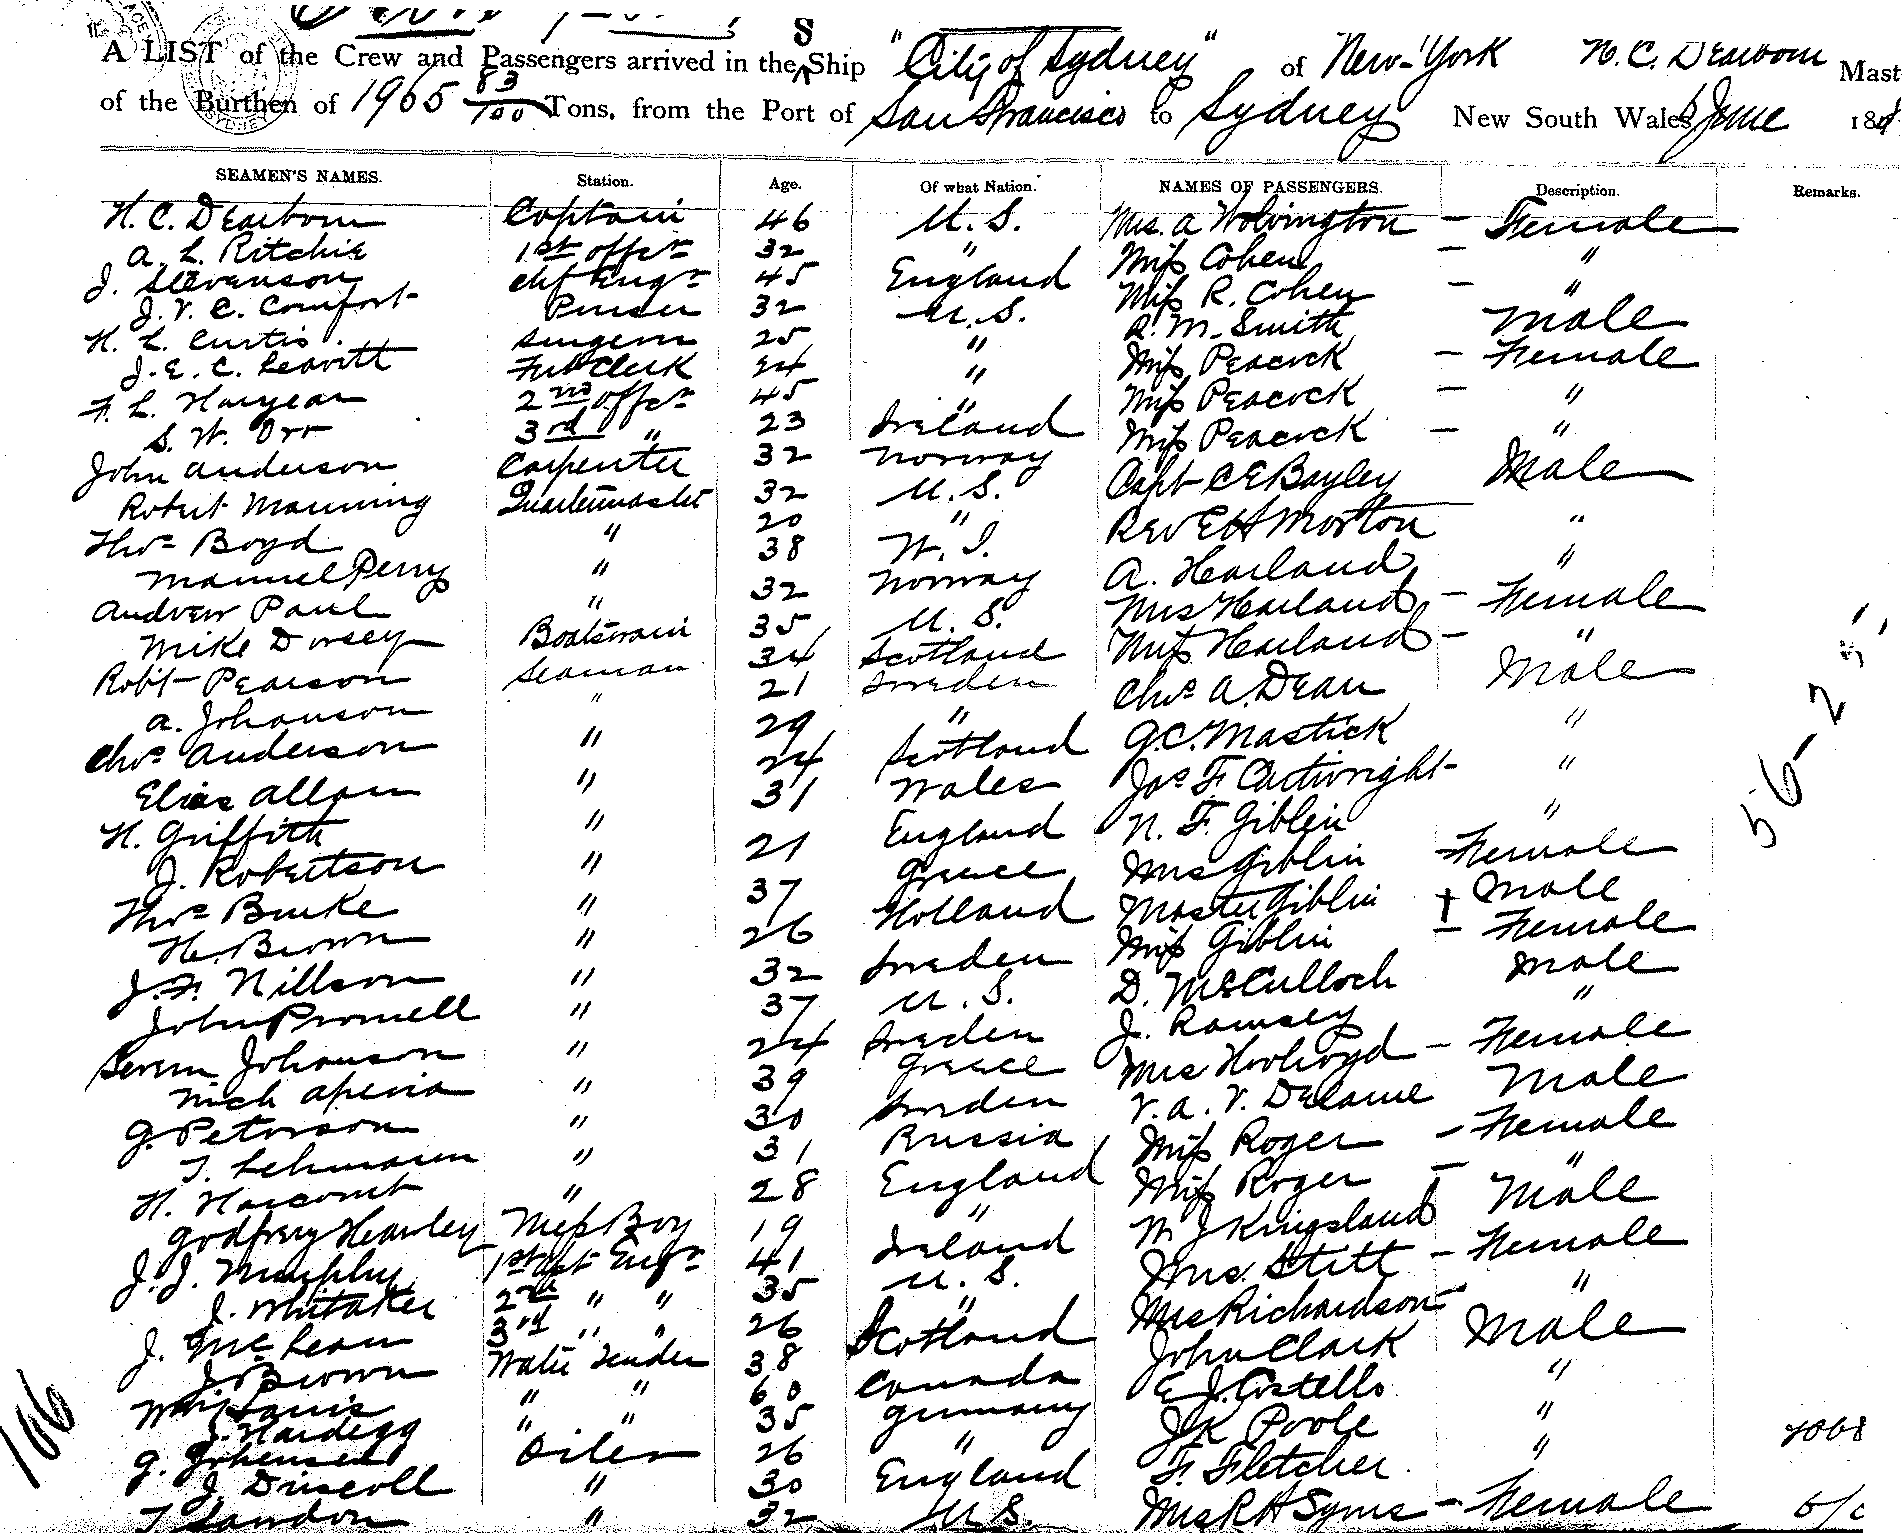 A LIST of the Crew and Passengers arrived in the S Ship "City of Sydney" of New-York H. C. Dearborn Mast
of the Burthen of 1965 83/100 Tons, from the Port of San Francisco to Sydney New South Wales June 18
SEAMEN'S NAMES. Station. Age. Of what Nation. NAMES OF PASSENGERS. Description. Remarks.
H. C. Dearborn Captain 46 U. S. Mrs. A Wolvington – Female
A. L. Ritchie 1st offcr 32 " Miss Cohen – "
J. Stevenson chf Engr 45 England Miss R. Cohen – "
J. V. C. Comfort Purser 32 U. S. R. M. Smith Male
H. L. Curtis. Surgeon 25 " Miss Peacock – Female
J. E. C. Leavitt Frt Clerk 24 " Miss Peacock – "
F. L. 2nd offcr 45 " Miss Peacock – "
S. W. Orr 3rd " 23 Ireland Capt C E Bayley Male
John Anderson Carpenter 32 Norway Rev E H Morton "
Robert Manning Quartermaster 32 U. S. A. Harland "
Thos Boyd " 20 " Mrs Harland – Female
Manuel Perry " 38 W. I. Miss Harland – "
Andrew Paul " 32 Norway Chas A. Dean Male
Mike Dorsey Boatswain 35 U. S. G. C. Mastick "
Robt Pearson Seaman 34 Scotland Jos F. Cartwright "
A. Johanson " 21 Sweden N. F. Giblin "
Chas Anderson " 29 " Mrs Giblin Female
Elias Allan " 24 Scotland Master Giblin + Male
H. Griffith " 31 Wales Miss Giblin – Female
J. Robertson " 21 England D. McCulloch Male
Thos Burke " 37 Greece J. Ramsey "
H. Brown " 26 Holland Mrs Holroyd – Female
J. F. Nillson " 32 Sweden V. A. V. Male
John " 37 U. S. Miss Roger – Female
Severin Johanson " 24 Sweden Miss Roger – "
Nich " 39 Greece W J Kingsland Male
G. Peterson " 30 Sweden Mrs. Stitt – Female
T. Lehmann " 31 Russia Mrs Richardson – "
H. Harcomb " 28 England John Clark Male
Godfrey Hearley Mess Boy 19 " E. J. Costello "
J. J. Murphy 1st Ast Engr 41 Ireland J K Poole "
J. Whitaker 2nd " " 35 U. S. F. Fletcher "
J. McLean 3rd " " 26 " Mrs R H Syms – Female
J. Brown Water Tender 38 Scotland
Wm Louis " " 60 Canada
J. Hardegg " " 35 Germany
G. Johensen Oiler 26 "
J. Driscoll " 30 England
T Lawdon " 32 U. S.
56-2
166